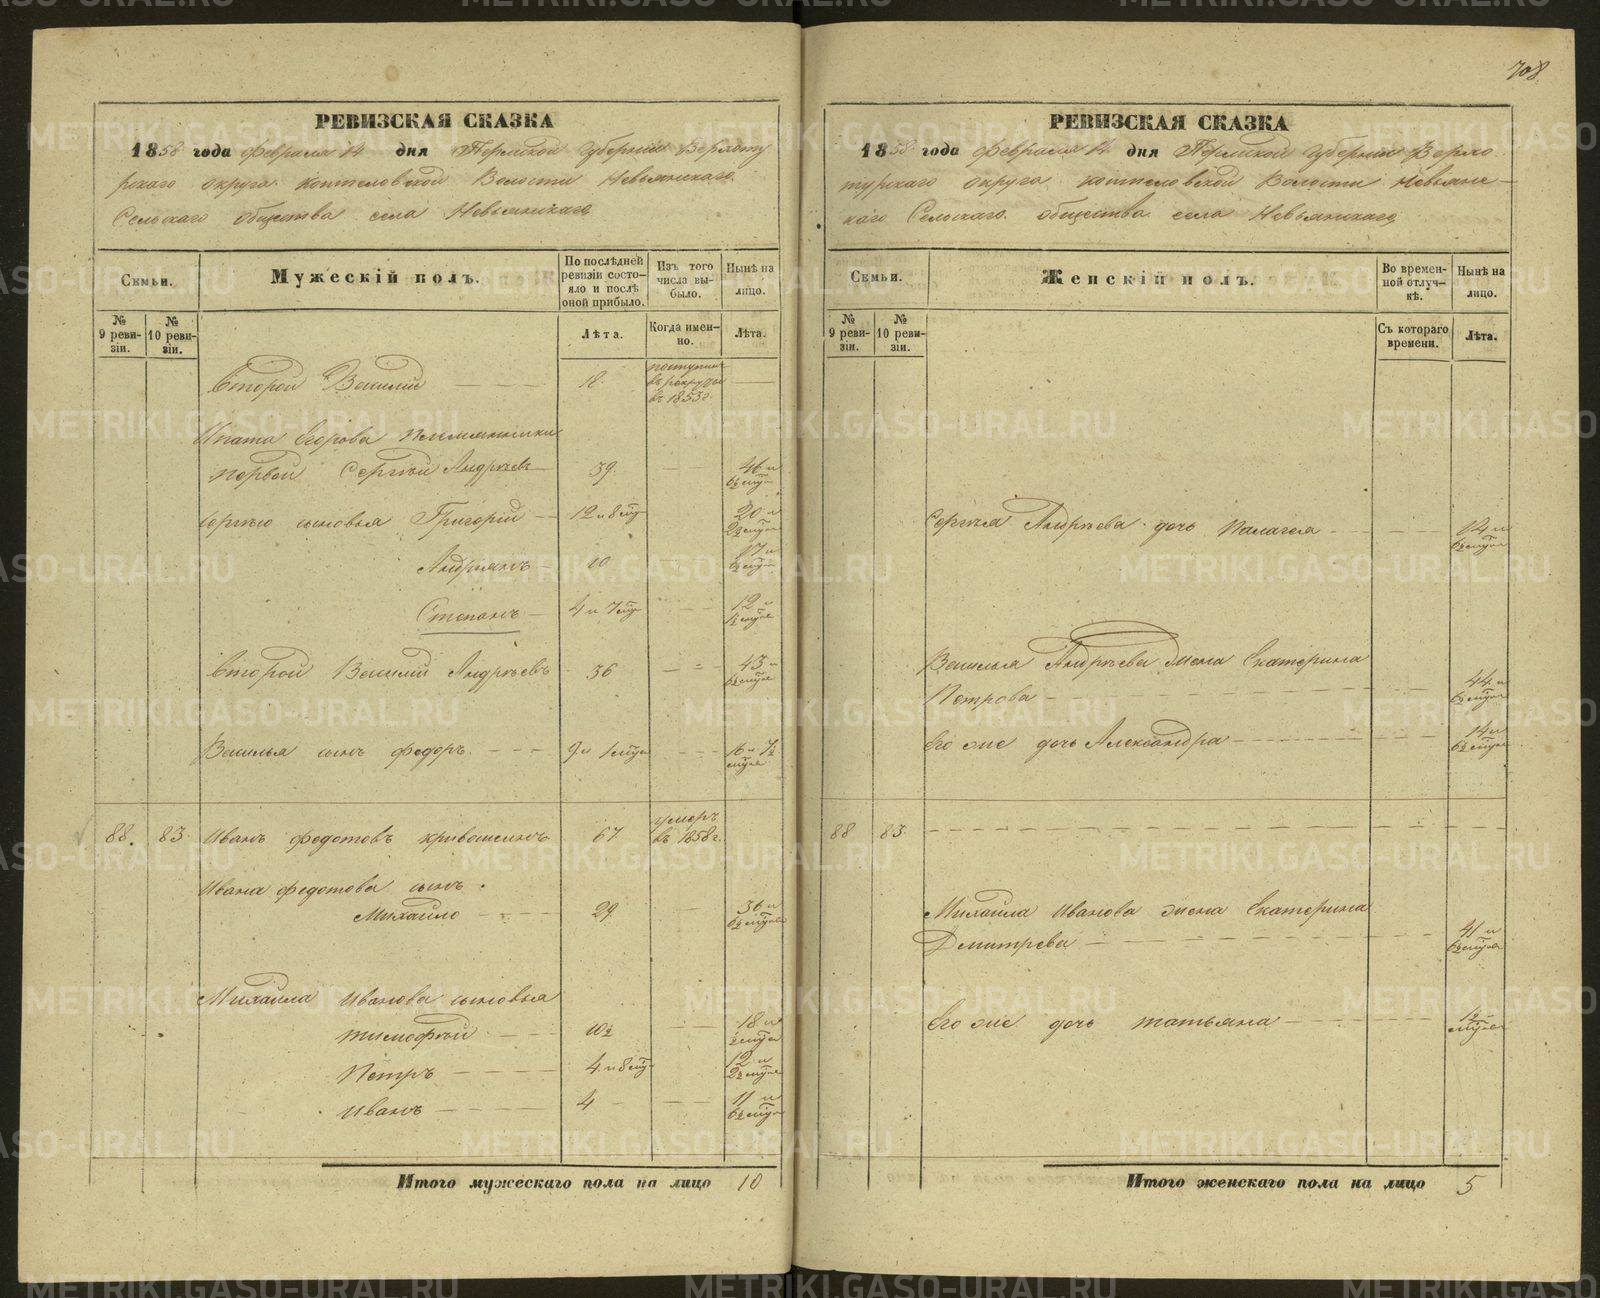 708
РЕВИЗСКАЯ СКАЗКА
1858 года февраля 14 дня Пермской губернии Верхоту
рскаго округа Коптеловской Волости Невьянскаго
Сельскаго общества села Невьянскаго
Семьи.
Мужескій полъ.
По послѣдней ревизіи состояло и послѣ оной прибыло.
Изъ того числа выбыло.
Нынѣ на лицо.
№ 9 ревизіи.
№ 10 ревизіи.
Лѣта.
Когда именно.
Лѣта.
Второй Василій 18. поступил въ рекруты въ 1855 г.
Ипата Егорова племянники
первой Сергѣй Андреевъ 39. 46 и 6½ мѣсяц
Сергѣю сыновья Григорій 12 и 8 мѣс 20 и 2½ мѣсяц
Андріанъ 10 17 и 6½ мѣсяц
Степанъ 4 и 7 мѣс 12 и 1½ мѣсяц
второй Василій Андреевъ 36 43 и 6½ мѣсяц
Василья сынъ федоръ 9 и 1 мѣсяц 16 и 7½ мѣсяц
88. 83. Иванъ федотовъ 67 умеръ въ 1858 г.
Ивана федотова сынъ
Михайло 29. 36 и 6½ мѣсяц
Михайла Иванова сыновья
тимофѣй 10½ 18 и ½ мѣсяц
Петръ 4 и 8 мѣс 12 и 2½ мѣсяц
Иванъ 4 11 и 6½ мѣсяц
Итого мужескаго пола на лицо 10
РЕВИЗСКАЯ СКАЗКА
1858 года февраля 14 дня Пермской губернии Верхо
турскаго округа Коптеловской Волости Невьянс-
каго Сельскаго общества села Невьянскаго
Семьи.
Женскій полъ.
Во временной отлучкѣ.
Нынѣ на лицо.
№ 9 ревизіи.
№ 10 ревизіи.
Съ котораго времени.
Лѣта.
Сергѣя Андреева дочь Палагея 12 и 6½ мѣсяц
Василья Андреева жена Екатерина
Петрова 44 и 6½ мѣсяц
Его же дочь Александра 14 и 6½ мѣсяц
88 83
Михайла Иванова жена Екатерина
Дмитрева 41 и 6½ мѣсяц
Его же дочь татьяна 1½ мѣсяц
Итого женскаго пола на лицо 5
METRIKI.GASO-URAL.RU